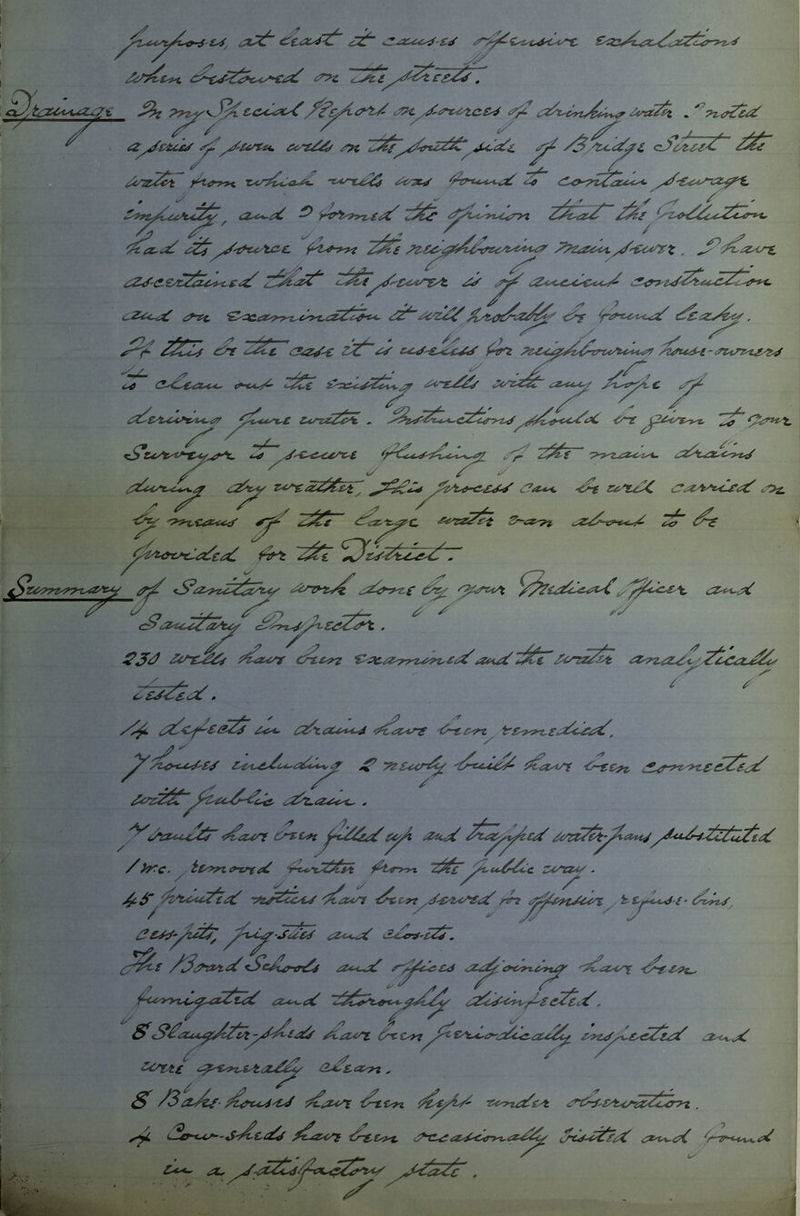 purposes, at least it causes offensive exhalations
when bestowed on the streets.
Drainage In my Special Report on sources of drinking water I noted
a series of seven wells on the south side of Bridge Street the
water from which wells was found to contain sewage
impurity, and I formed the opinion that the pollution
had its source from the neighbouring Main sewer. I have
ascertained that the sewer is of ancient construction
and on examination it will probably be found leaky.
If this be the case it is useless for neighbouring house-owners
to clean out the existing wells with any hope of
deriving pure water. Instructions should be given to your
Surveyor to secure flushing of the main drains
during dry weather, this process can be well carried on
by means of the large water van about to be
provided for the District.
Summary of Sanitary work done by your Medical Officer and
Sanitary Inspector.
230 wells have been examined and the water analytically
tested.
14 defects in drains have been remedied.
7 houses including 2 newly built have been connected
with public drain.
7 vaults have been filled up and trapped water-pans substituted
1 W.C. removed further from the public way.
45 printed notices have been served for offensive refuse-bins,
cess-pits, pig-sties and closets.
The Board Schools and offices adjoining have been
fumigated and thoroughly disinfected.
8 Slaughter-sheds have been periodically inspected and
were generally clean.
8 Bake-houses have been kept under observation.
4 Cow-sheds have been occasionally visited and found
in a satisfactory state.